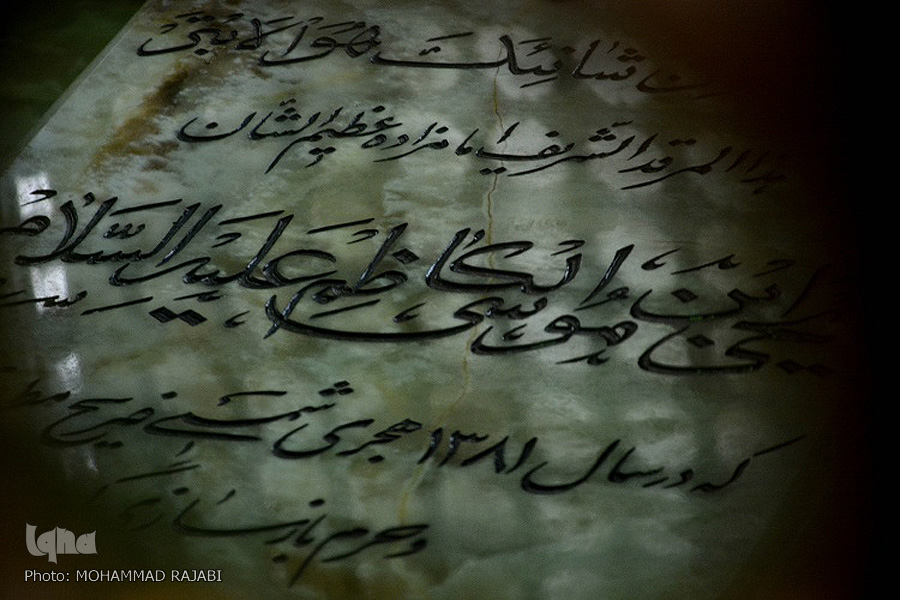 ان شانئک هو الابتر
هذا المرقد الشریف امامزاده عظیم الشان
یحیی ابن موسی الکاظم علیه السلام
که در سال ۱۳۸۱ هجری شمسی ضریح
و حرم بازسازی
Iqna
Photo: MOHAMMAD RAJABI